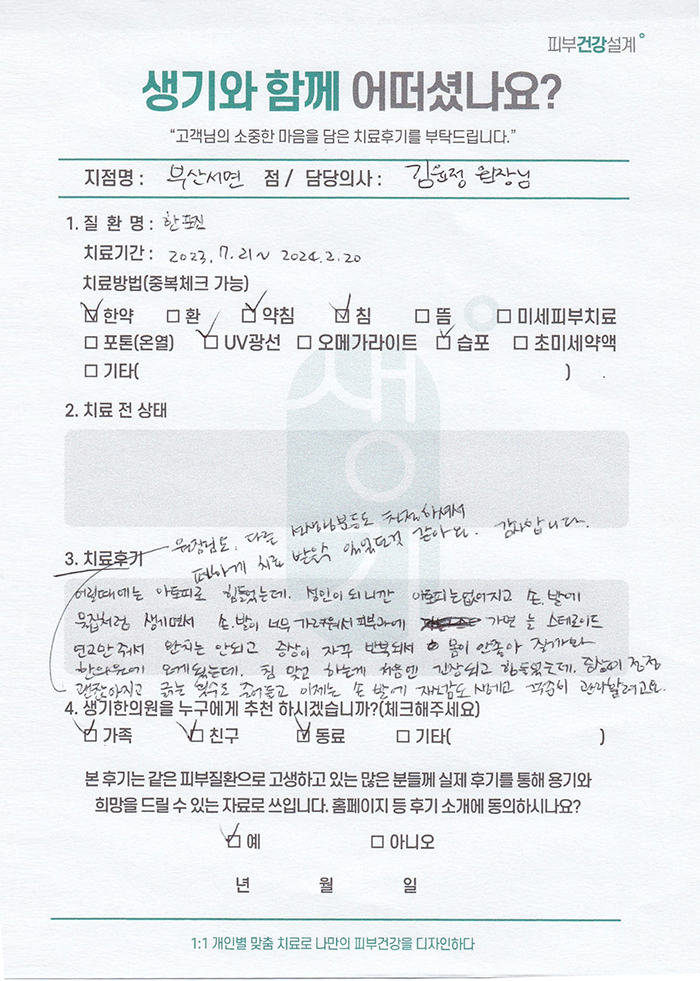 피부건강설계
생기와 함께 어떠셨나요?
“고객님의 소중한 마음을 담은 치료후기를 부탁드립니다.”
지점명 : 부산서면 점 / 담당의사 : 김윤정 원장님
1. 질 환 명 : 한포진
치료기간 : 2023. 7. 21 ~ 2024. 2. 20
치료방법(중복체크 가능)
☑ 한약 ☐ 환 ☑ 약침 ☑ 침 ☐ 뜸 ☐ 미세피부치료
☐ 포톤(온열) ☑ UV광선 ☐ 오메가라이트 ☑ 습포 ☐ 초미세약액
☐ 기타( )
2. 치료 전 상태
생기
원장님도, 다른 선생님분들도 친절하셔서
3. 치료후기
편하게 치료 받을수 있었던것 같아요. 감사합니다.
어릴때에는 아토피로 힘들었는데. 성인이 되니깐 아토피는없어지고 손, 발에
무좀처럼 생기면서 손, 발이 너무 가려워워서 피부과에 가면 늘 스테로이드
연고만 줘서 완치는 안되고 증상이 자꾸 반복되서 몸이 안좋아 질까봐
한의원에 오게됬는데. 침 맞고 하는게 처음엔 긴장되고 힘들었는데, 증상이 점점
괜찮아지고 긁는 횟수도 줄어들고 이제는 손 발에 자신감도 생기고 꾸준히 관리할려고요.
4. 생기한의원을 누구에게 추천 하시겠습니까?(체크해주세요)
☑ 가족 ☑ 친구 ☑ 동료 ☐ 기타( )
본 후기는 같은 피부질환으로 고생하고 있는 많은 분들께 실제 후기를 통해 용기와
희망을 드릴 수 있는 자료로 쓰입니다. 홈페이지 등 후기 소개에 동의하시나요?
☑ 예 ☐ 아니오
년 월 일
1:1 개인별 맞춤 치료로 나만의 피부건강을 디자인하다